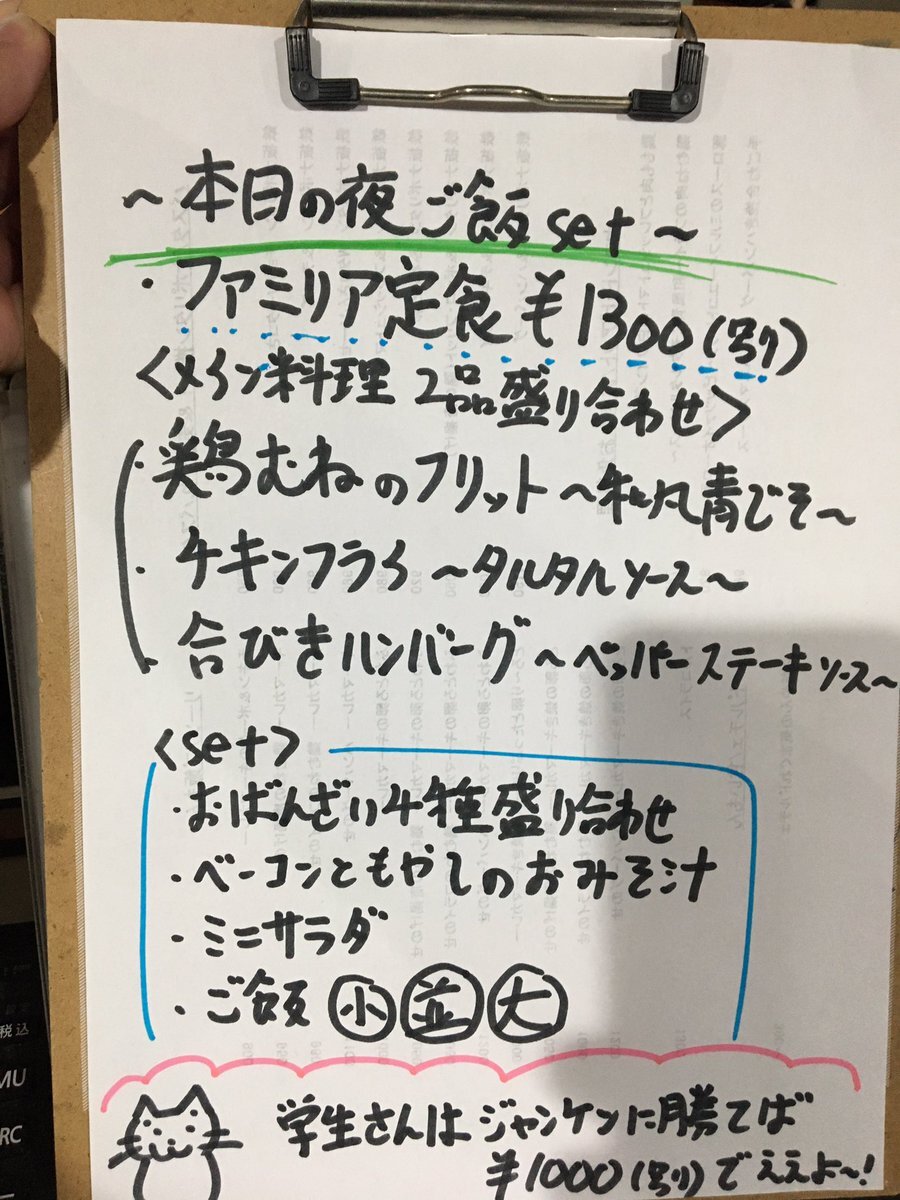 ～本日の夜ご飯set～
・ファミリア定食¥1300(込)
<メイン料理 2品盛り合わせ>
・鶏むねのフリット～和风青じそ～
・チキンフライ～タルタルソース～
・合びきハンバーグ～ペッパーステーキソース～
<set>
・おばんざい4種盛り合わせ
・ベーコンともやしのおみそ汁
・ミニサラダ
・ご飯 小 並 大
学生さんはジャンケンに勝てば
¥1000(込)でええよ～!
税込
MU
RC